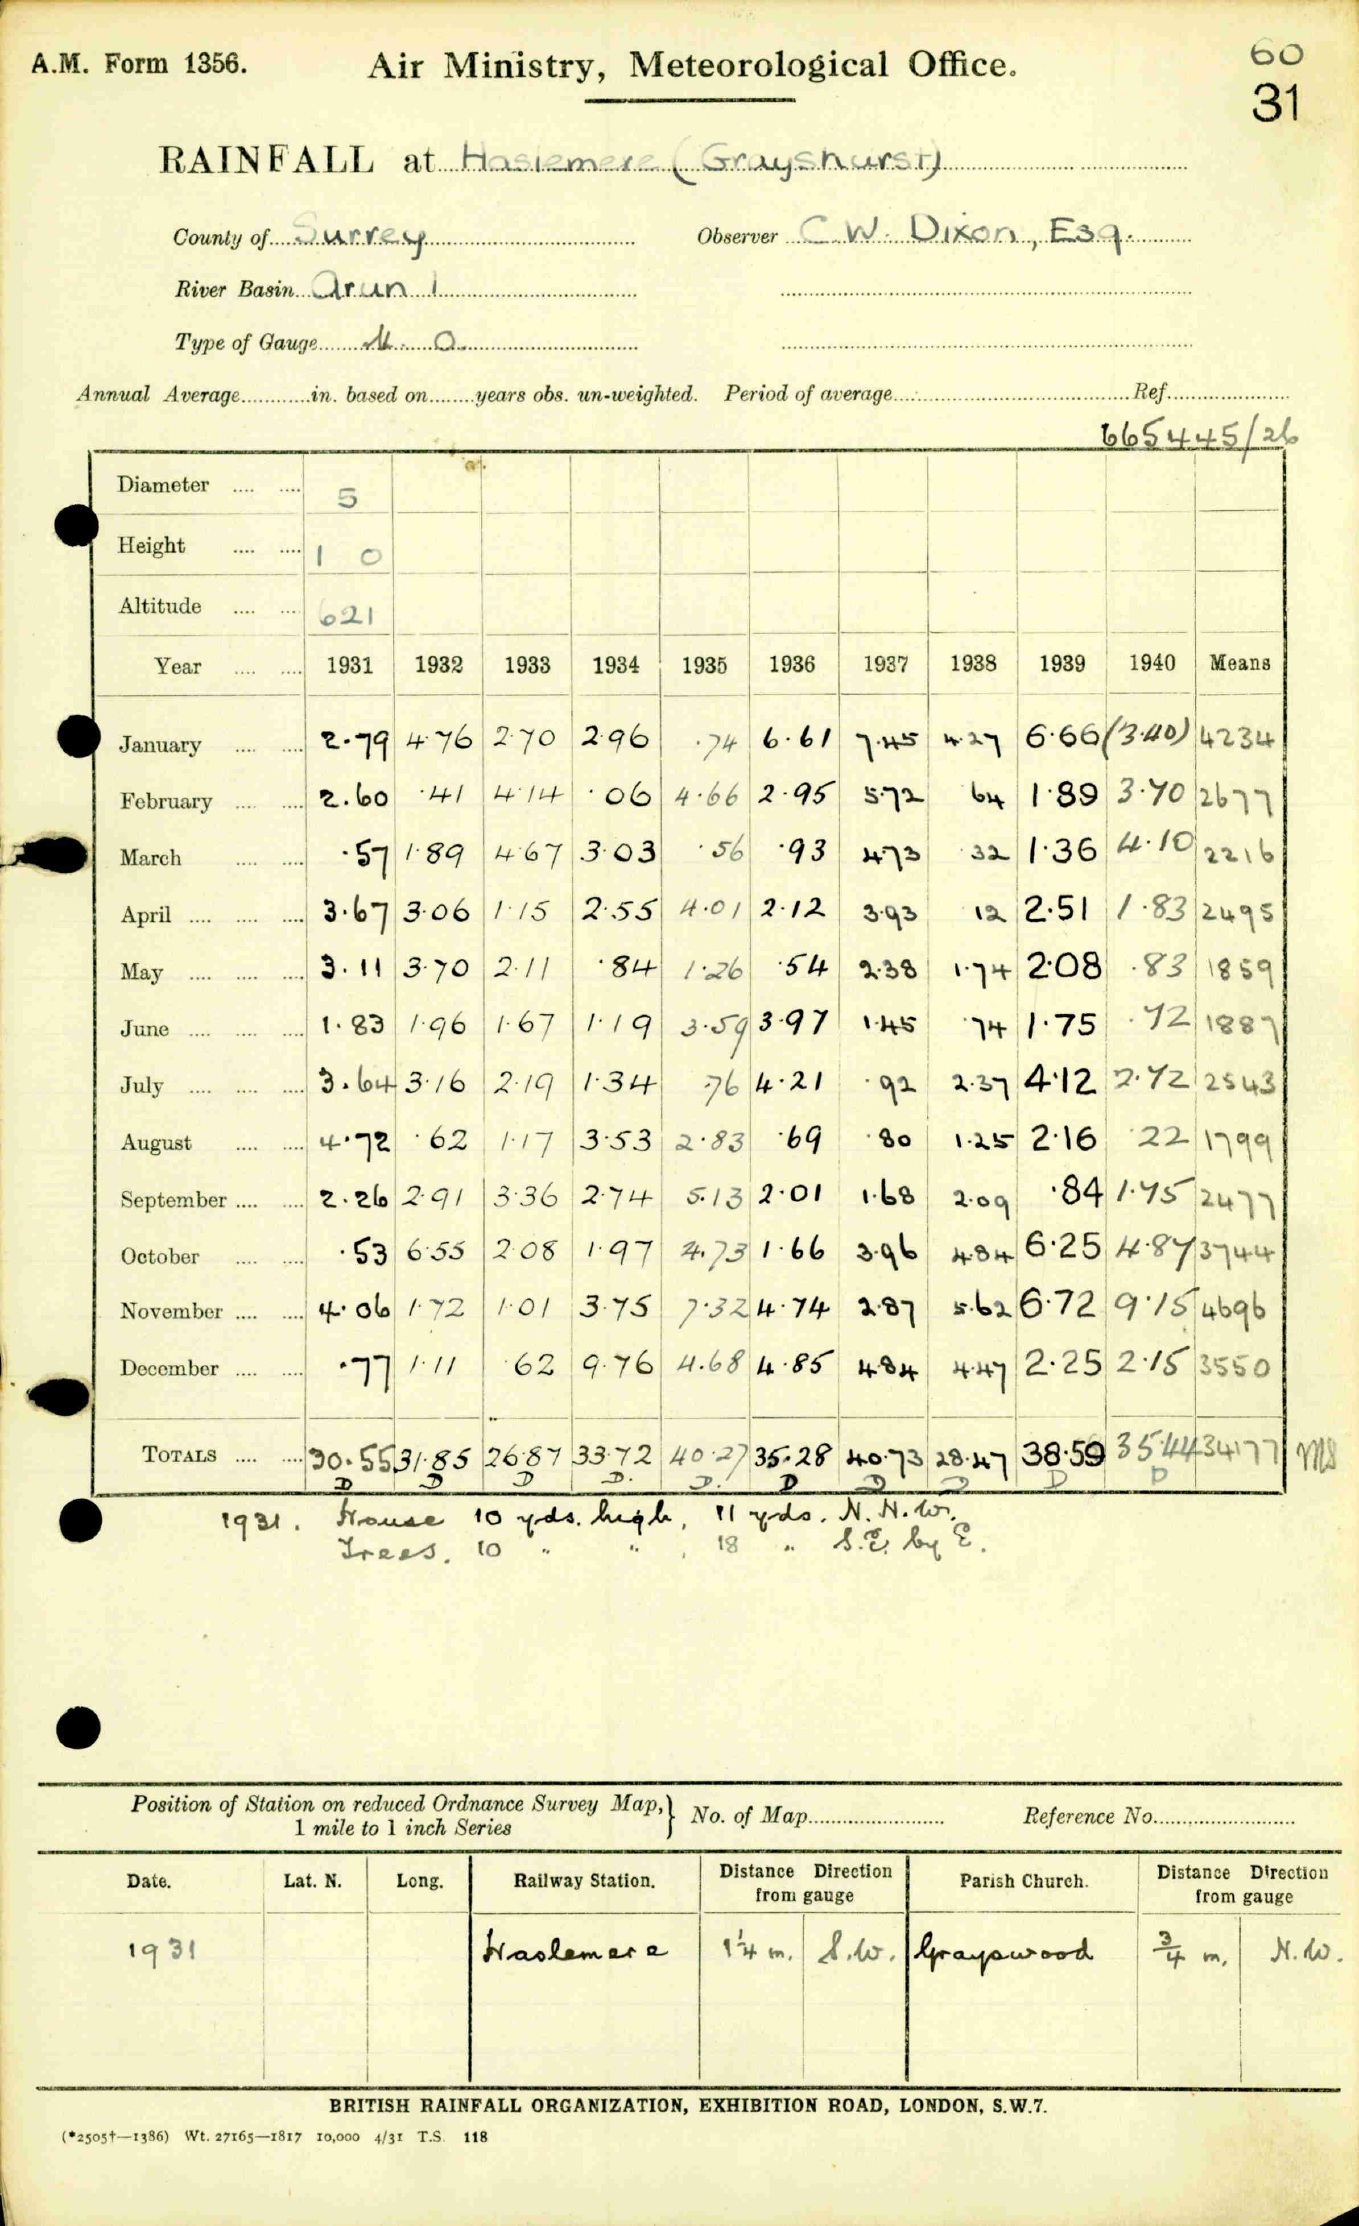 A.M. Form 1356.
Air Ministry, Meteorological Office.
60
31
RAINFALL at Haslemere (Grayshurst)
County of Surrey Observer C. W. Dixon, Esq.
River Basin Arun 1
Type of Gauge M. O.
Annual Average in. based on years obs. un-weighted. Period of average Ref.
665445/26
Diameter 5
Height 1 0
Altitude 621
Year 1931 1932 1933 1934 1935 1936 1937 1938 1939 1940 Means
January 2.79 4.76 2.70 2.96 .74 6.61 7.45 4.27 6.66 (3.40) 4234
February 2.60 .41 4.14 .06 4.66 2.95 5.72 64 1.89 3.70 2677
March .57 1.89 4.67 3.03 .56 .93 4.73 .32 1.36 4.10 2216
April 3.67 3.06 1.15 2.55 4.01 2.12 3.93 12 2.51 1.83 2495
May 3.11 3.70 2.11 .84 1.26 .54 2.38 1.74 2.08 .83 1859
June 1.83 1.96 1.67 1.19 3.59 3.97 1.45 .74 1.75 .72 1887
July 3.64 3.16 2.19 1.34 .76 4.21 .92 2.37 4.12 2.72 2543
August 4.72 .62 1.17 3.53 2.83 .69 .80 1.25 2.16 .22 1799
September 2.26 2.91 3.36 2.74 5.13 2.01 1.68 2.09 .84 1.75 2477
October .53 6.55 2.08 1.97 4.73 1.66 3.96 4.84 6.25 4.87 3744
November 4.06 1.72 1.01 3.75 7.32 4.74 2.87 5.62 6.72 9.15 4696
December .77 1.11 .62 9.76 4.68 4.85 4.84 4.47 2.25 2.15 3550
TOTALS 30.55 31.85 26.87 33.72 40.27 35.28 40.73 28.47 38.59 35.44 34177 MS
D D D D. D. D D D D D
1931. House 10 yds. high, 11 yds. N.N.W.
Trees. 10 " " , 18 " S.E. by E.
Position of Station on reduced Ordnance Survey Map, 1 mile to 1 inch Series } No. of Map Reference No.
Date. Lat. N. Long. Railway Station. Distance Direction from gauge Parish Church. Distance Direction from gauge
1931 Haslemere 1¼ m. S.W. Grayswood ¾ m. N.W.
BRITISH RAINFALL ORGANIZATION, EXHIBITION ROAD, LONDON, S.W.7.
(*2505†—1386) Wt. 27165—1817 10,000 4/31 T.S. 118